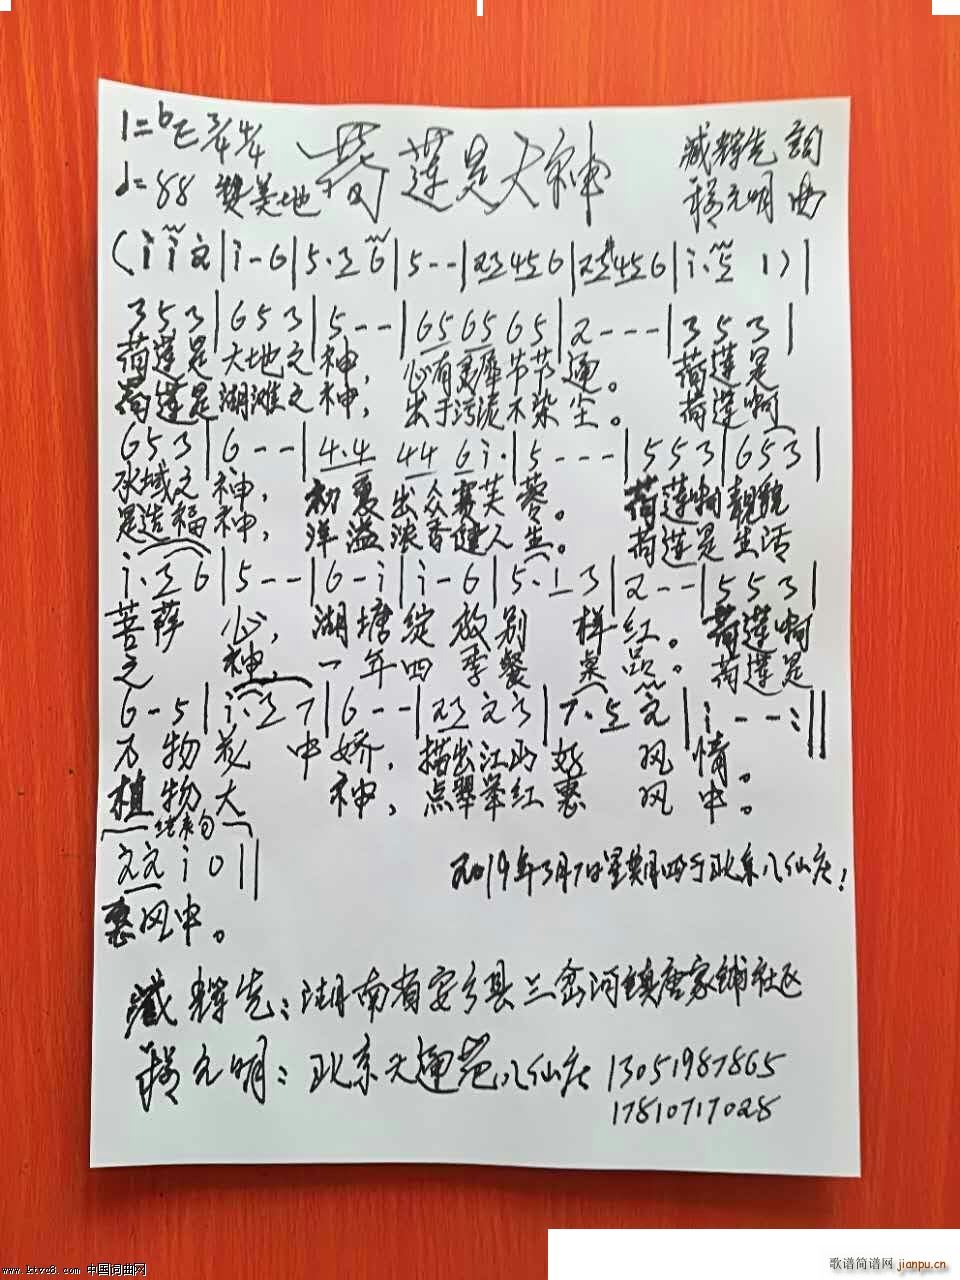 1=bE 3/4 4/4 荷莲是大神 臧辉先 詞
♩=88 赞美地 程元明 曲
(i i 2|i-6|5·3 6|5--|23 45 6|23 45 6|i·5 1)|
3 5 3|6 5 3|5--|65 65 65|2---|3 5 3|
荷莲是 大地之 神， 心有灵犀节节 通。 荷莲是
荷莲是湖滩之 神， 出于污泥不染 尘。 荷莲啊
6 5 3|6--|4·4 44 6i·|5---|5 5 3|6 5 3|
水域之 神， 初夏出众赛芙 蓉。 荷莲啊靓貌
是造福 神， 洋溢浓香健人 生。 荷莲是 生活
i·3 6|5--|6-i|i-6|5·1 3|2--|5 5 3|
菩萨 心， 湖塘绽放别 样红。 荷莲啊
之 神， 一年四季餐 桌品。 荷莲是
6-5|i·3 7|6--|23 2 3|7·5 2|i--:||
万物花 中娇， 描出江山好 风情。
植物大 神， 点翠举红惠 风中。
结束句
22 i 0||
惠风中。
2019年3月7日星期四于北京八仙庄！
臧辉先：湖南省安乡县三岔河镇唐家铺社区
程元明：北京天通苑八仙庄 13051987865
17810717028
www.ktvc8.com 中国词曲网
歌谱简谱网
jianpu.cn